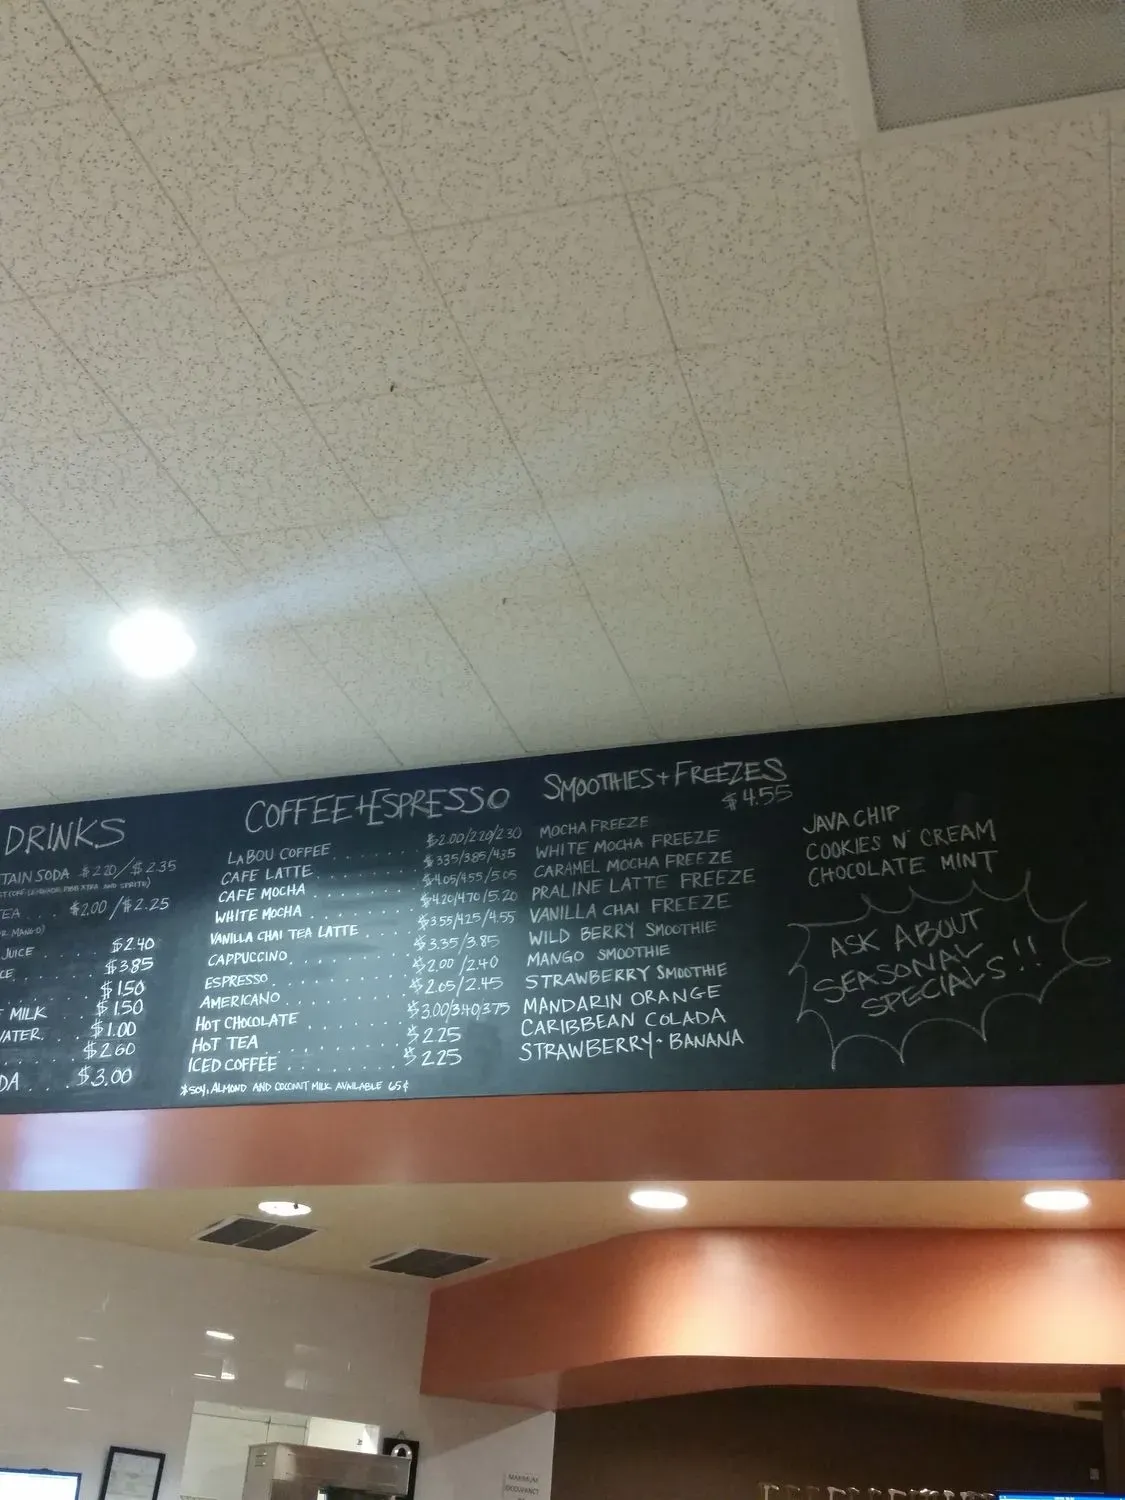 DRINKS
TAIN SODA $2.20/$2.35
TEA . . . $2.00/$2.25
JUICE . . $2.40
CE . . . $3.85
. . . $1.50
MILK . . $1.50
WATER. . $1.00
. . . $2.60
DA . . . $3.00
COFFEE+ESPRESSO
LA BOU COFFEE . . . . . . $2.00/2.20/2.30
CAFE LATTE . . . . . . $3.35/3.85/4.35
CAFE MOCHA . . . . . . $4.05/4.55/5.05
WHITE MOCHA . . . . . . $4.20/4.70/5.20
VANILLA CHAI TEA LATTE . . . . $3.55/4.25/4.55
CAPPUCCINO. . . . . . $3.35/3.85
ESPRESSO . . . . . . $2.00/2.40
AMERICANO . . . . . . $2.05/2.45
HOT CHOCOLATE . . . . . . $3.00/3.40/3.75
HOT TEA . . . . . . $2.25
ICED COFFEE . . . . . . $2.25
*SOY, ALMOND AND COCONUT MILK AVAILABLE 65¢
SMOOTHIES+FREEZES
$4.55
MOCHA FREEZE
WHITE MOCHA FREEZE
CARAMEL MOCHA FREEZE
PRALINE LATTE FREEZE
VANILLA CHAI FREEZE
WILD BERRY SMOOTHIE
MANGO SMOOTHIE
STRAWBERRY SMOOTHIE
MANDARIN ORANGE
CARIBBEAN COLADA
STRAWBERRY-BANANA
JAVA CHIP
COOKIES N' CREAM
CHOCOLATE MINT
ASK ABOUT
SEASONAL
SPECIALS!!
MAXIMUM
OCCUPANCY